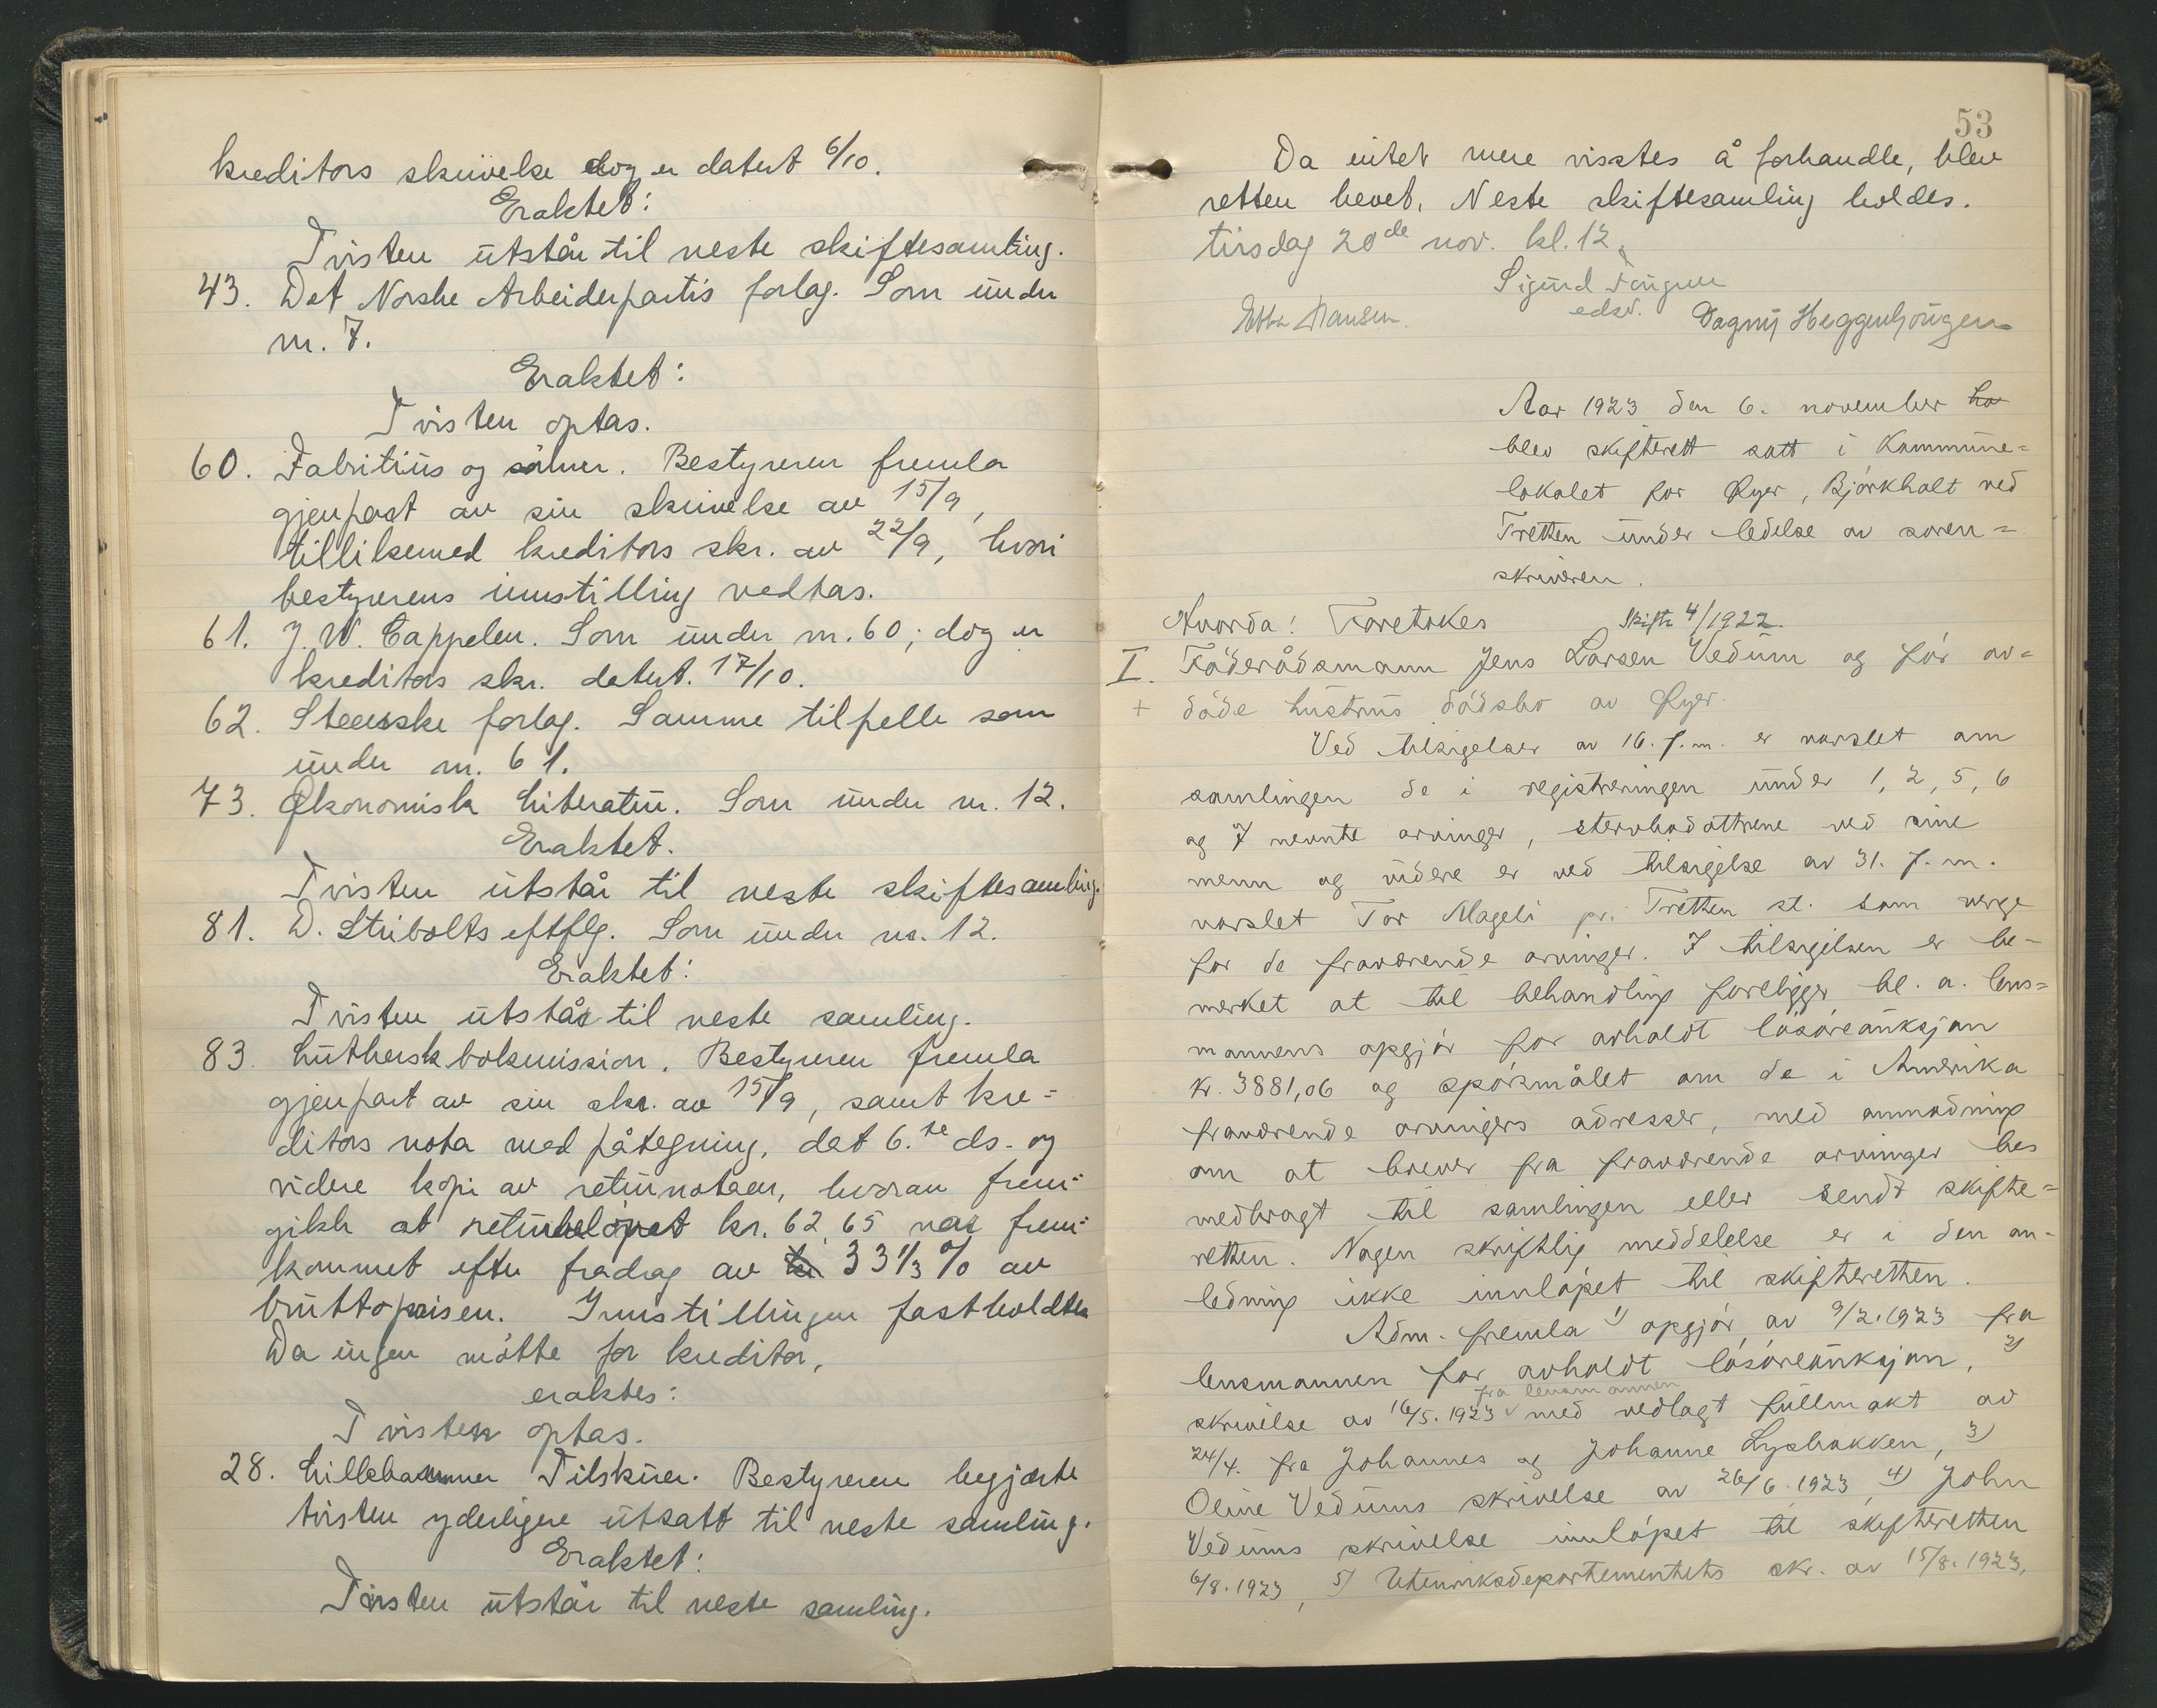 kreditors skrivelse dog er datert 6/10.
Eraktet:
Tvisten utstår til neste skiftesamling.
43. Det Norske Arbeiderpartis forlag. Som under
nr. 7.
Eraktet:
Tvisten optas.
60. Fabritius og sönner. Bestyreren fremla
gjenpart av sin skrivelse av 15/9,
tillikemed kreditors skr. av 22/9, hvori
bestyrerens innstilling vedtas.
61. J. W. Cappelen. Som under nr. 60; dog er
kreditors skr. datert. 17/10.
62. Steenske forlag. Samme tilfelle som
under nr. 61.
73. Økonomisk Literatur. Som under nr. 12.
Eraktet.
Tvisten utstår til neste skiftesamling.
81. D. Stribolts eftflg. Som under nr. 12.
Eraktet:
Tvisten utstår til neste samling.
83. Luthersk bokmission. Bestyreren fremla
gjenpart av sin skr. av 15/9, samt kre=
ditors nota med påtegning, dat 6.te ds. og
videre kopi av returnotaen, hvorav frem=
gikk at returbelöpet kr. 62,65 var frem=
kommet efter fradrag av 33 1/3 % av
bruttoprisen. Innstillingen fastholdtes
Da ingen mötte for kreditor,
eraktes:
Tvisten optas.
28. Lillehammer Tilskuer. Bestyreren begjærte
tvisten yderligere utsatt til neste samling.
Eraktet:
Tvisten utstår til neste samling.
53
Da intet mere visstes å forhandle, blev
retten hevet. Neste skiftesamling holdes.
tirsdag 20de nov. kl. 12.
Sigurd
edsv.
Ebba Hansen. Dagny Heggenhougen
Aar 1923 den 6. november ho
blev skifterett satt i Kommune=
lokalet for Øyer, Björkholt ved
Tretten under ledelse av soren=
skriveren.
Hvorda: Foretokes Skifte 4/1922.
I. Föderådsmann Jens Larsen Vedum og för av=
+ döde hustrus dödsbo av Øyer.
Ved tilsigelser av 16. f. m. er varslet om
samlingen de i registreringen under 1, 2, 5, 6
og 7 nevnte arvinger, stervbodöttrene ved sine
menn og videre er ved tilsigelse av 31. f. m.
varslet Tor Mageli pr. Tretten st. som verge
for de fraværende arvinger. I tilsigelsen er be-
merket at til behandling foreligger bl. a. lens=
mannens opgjör for avholdt lösöreauksjon
kr. 3881,06 og spörsmålet om de i Amerika
fraværende arvingers adresser, med anmodning
om at brever fra fraværende arvinger bes
medbragt til samlingen eller sendt skifte=
retten. Nogen skriftlig meddelelse er i den an-
ledning ikke innlöpet til skifteretten.
Adm. fremla 1) opgjör av 9/2.1923 fra
lensmannen for avholdt lösöreauksjon, 2)
fra lensmannen
skrivelse av 16/5.1923 med vedlagt fullmakt av
24/4. fra Johannes og Johanne Lysbakken, 3)
Oline Vedums skrivelse av 26/6.1923, 4) John
Vedums skrivelse innlöpet til skifteretten
6/8.1923, 5) Utenriksdepartementets skr. av 15/8.1923,